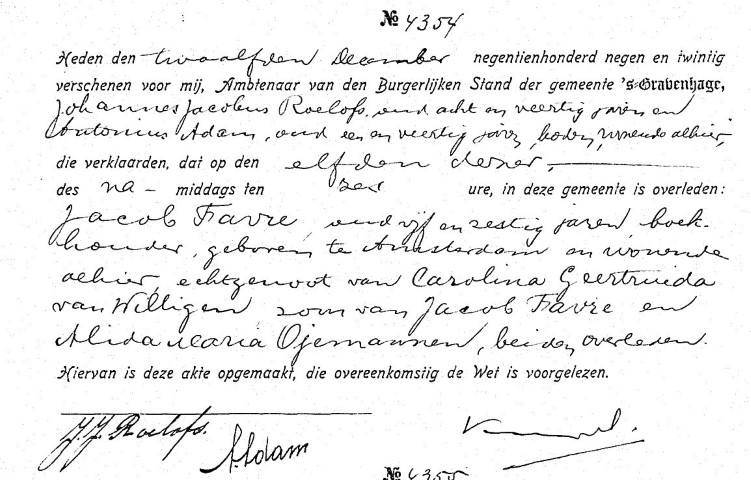 № 4354
Heden den twaalfden December negentienhonderd negen en twintig
verschenen voor mij, Ambtenaar van den Burgerlijken Stand der gemeente 's-Gravenhage,
Johannes Jacobus Roelofs, oud acht en veertig jaren en
Antonius Adam, oud een en veertig jaren, boden, wonende alhier,
die verklaarden, dat op den elfden dezer,
des na- middags ten zes ure, in deze gemeente is overleden:
Jacob Favre, oud vijf en zestig jaren, boek-
houder, geboren te Amsterdam en wonende
alhier, echtgenoot van Carolina Geertruida
van Willigen zoon van Jacob Favre en
Alida Maria Ojemannen, beiden overleden.
Hiervan is deze akte opgemaakt, die overeenkomstig de Wet is voorgelezen.
J.J. Roelofs.
A. Adam
№ 4355